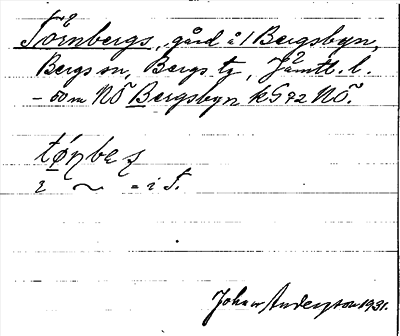 Törnbergs, gård å 1 Bergsbyn,
Bergs sn, Bergs tg, Jämtl. l.
– 50 m NÖ Bergsbyn kG 72 NÖ.
tǿɳbæʂ
2 ~ = i T.
Johan Anderson 1931.